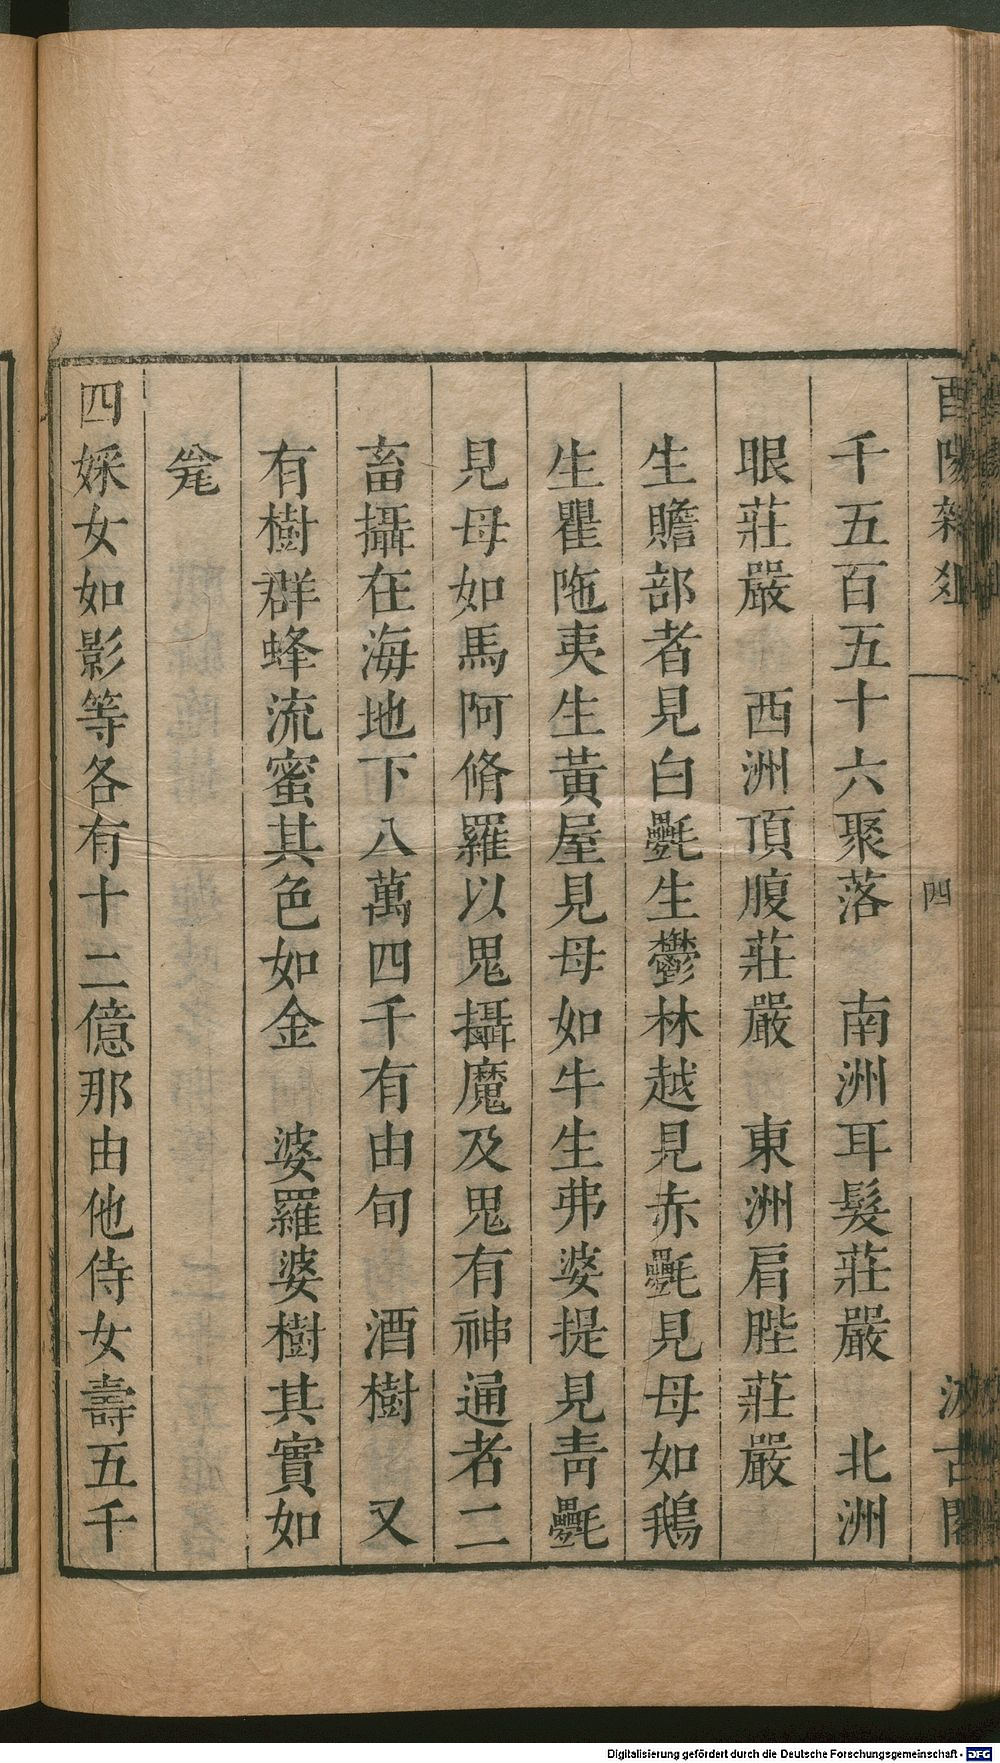 酉陽雜俎
四
汲古閣
千五百五十六聚落　南洲耳髮莊嚴　北洲
眼莊嚴　西洲頂腹莊嚴　東洲肩䏶莊嚴
生贍部者見白㲲生鬱林越見赤㲲見母如鵝
生瞿陁夷生黃屋見母如牛生弗婆提見靑㲲
見母如馬阿脩羅以鬼攝魔及鬼有神通者二
畜攝在海地下八萬四千有由旬　酒樹　又
有樹群蜂流蜜其色如金　婆羅婆樹其實如
甕
四婇女如影等各有十二億那由他侍女壽五千
Digitalisierung gefördert durch die Deutsche Forschungsgemeinschaft - DFG